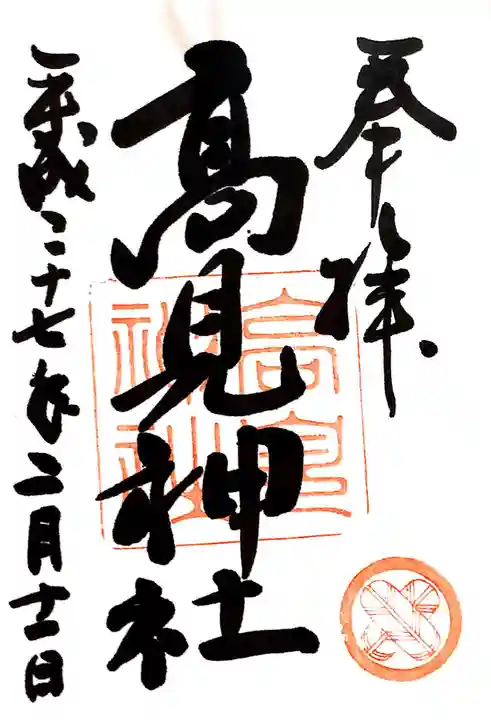 奉拝
高見神社
平成二十七年二月十一日
高見
神社